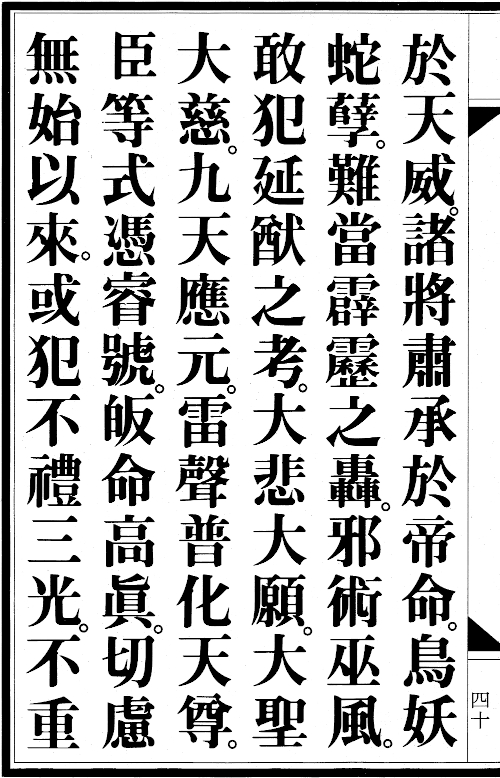 於天威。諸將肅承於帝命。鳥妖
蛇孽。難當霹靂之轟。邪術巫風。
敢犯延猷之考。大悲大願。大聖
大慈。九天應元。雷聲普化天尊。
臣等式憑睿號。皈命高眞。切慮
無始以來。或犯不禮三光。不重
四十